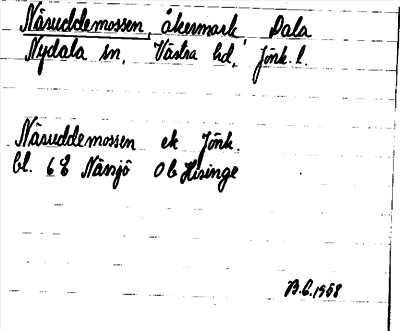 Näsuddemossen, åkermark, Dala
Nydala sn, Västra hd, Jönk. l.
Näsuddemossen ek Jönk.
bl. 6 E Nässjö 0 b Hisinge
B.E. 1958